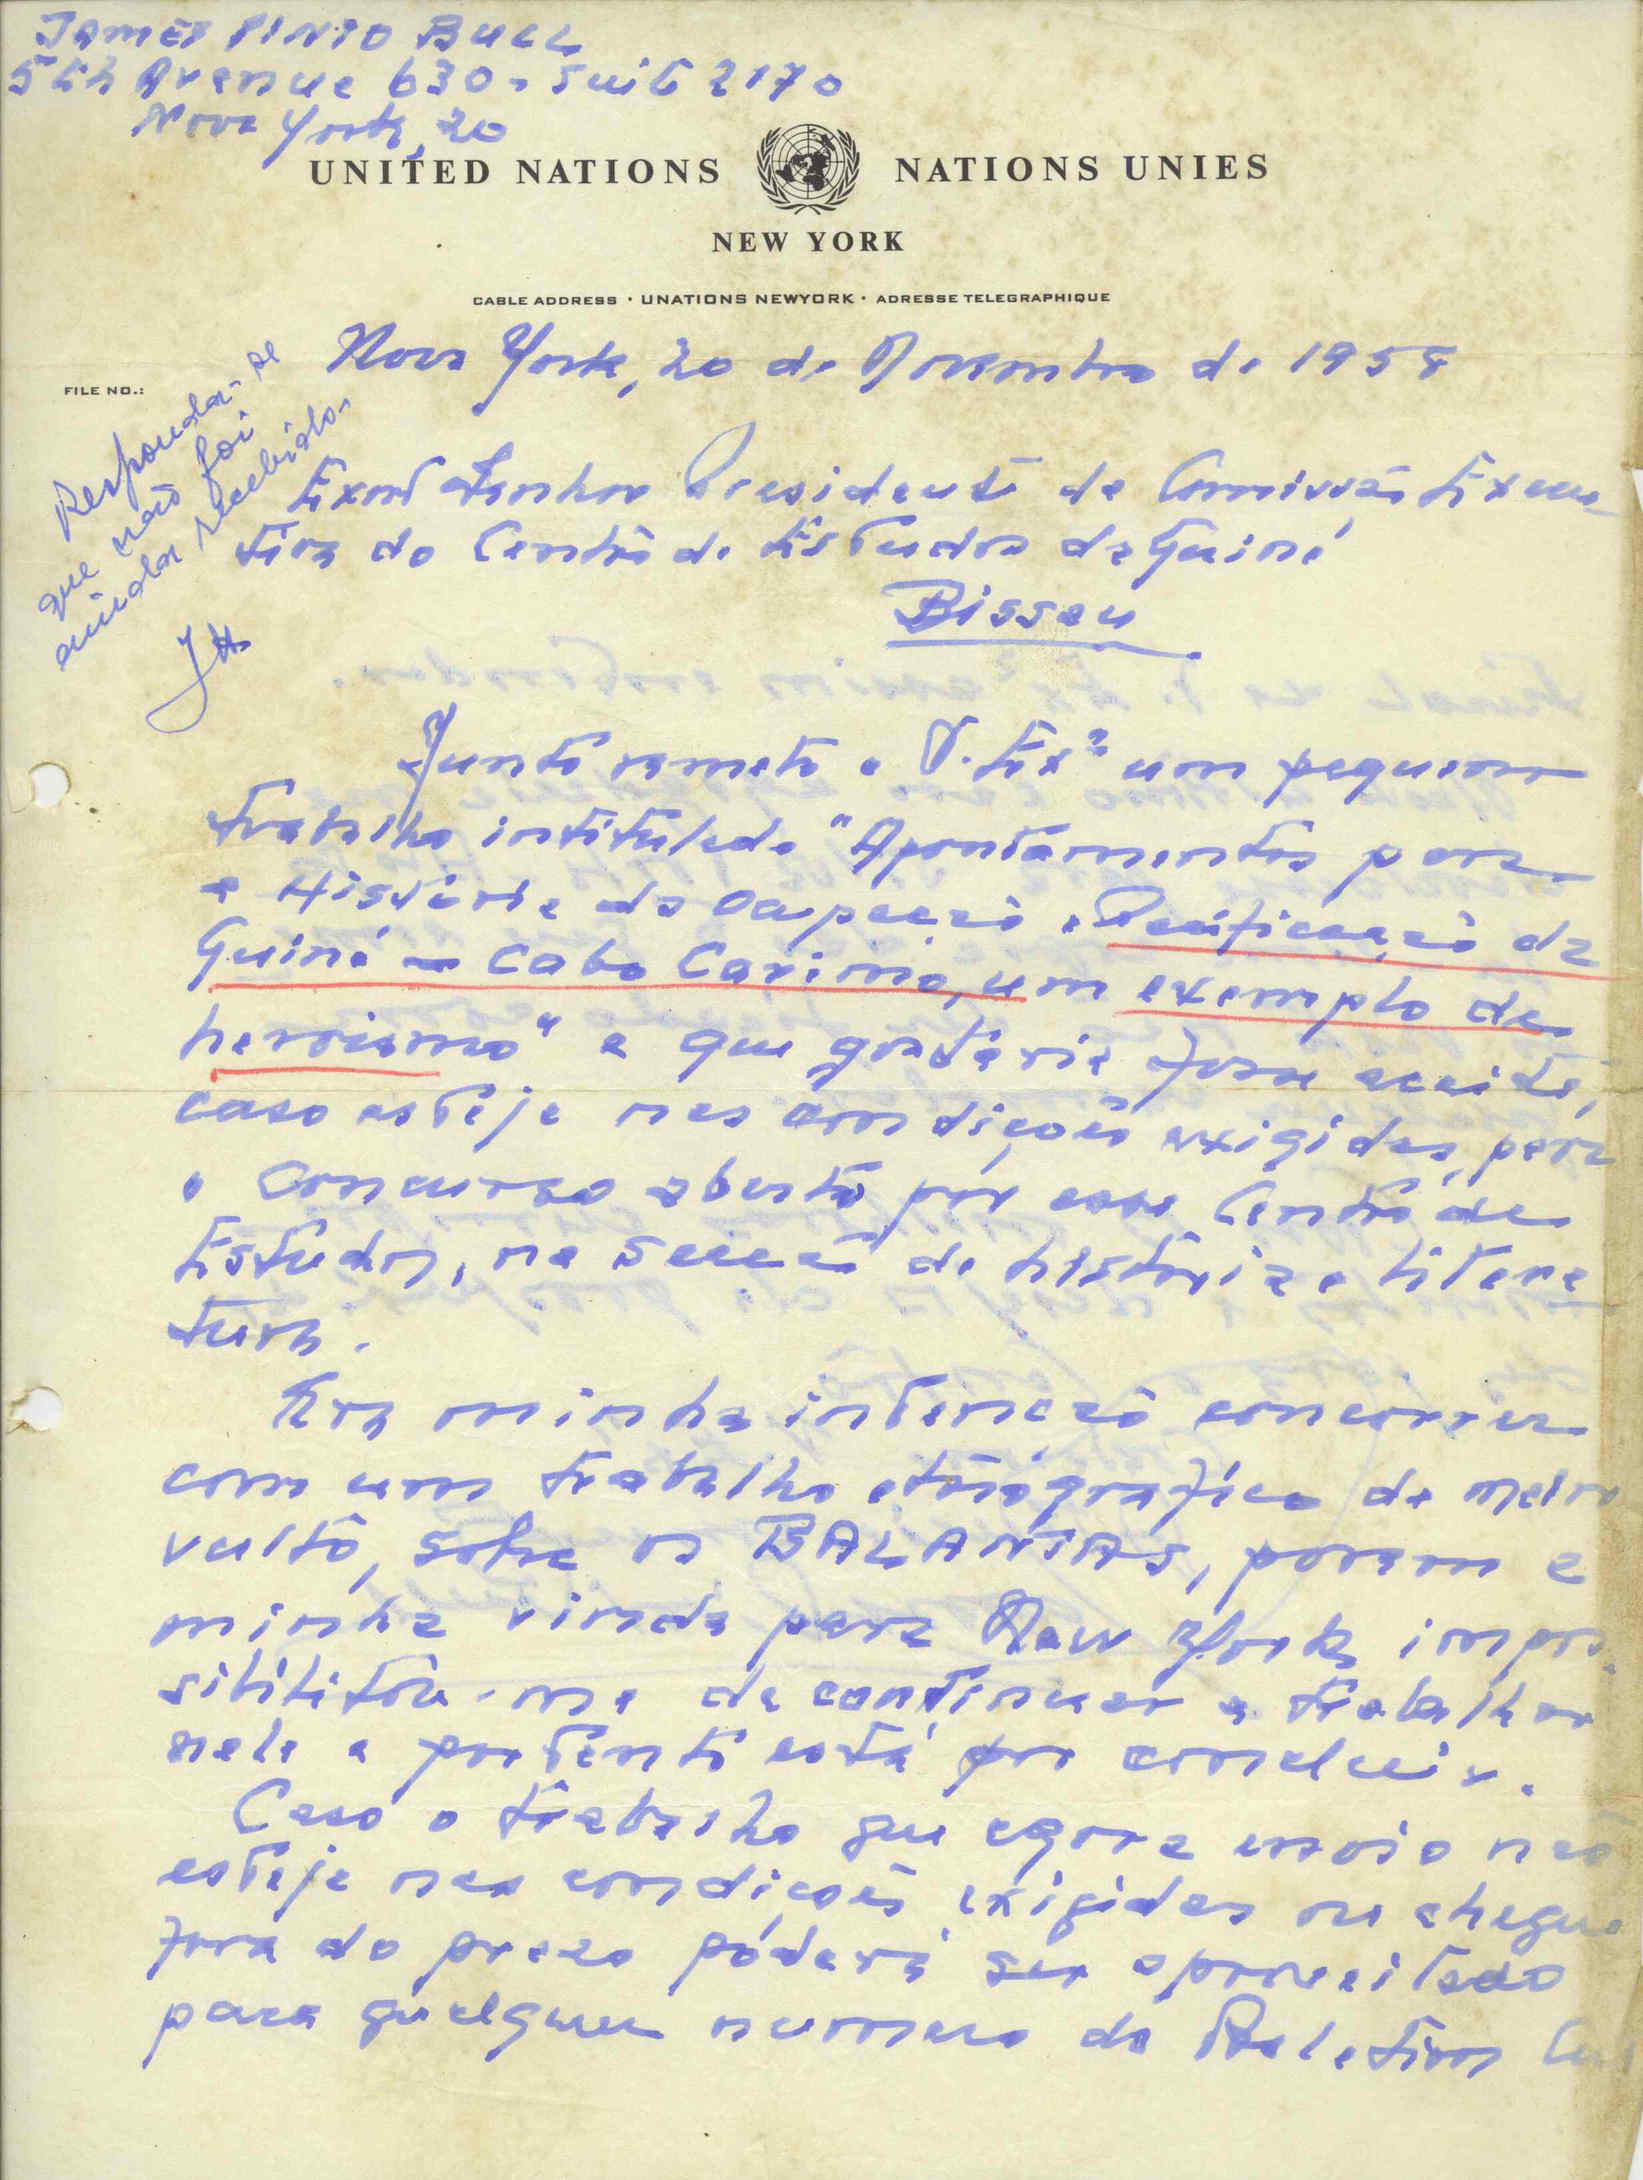 James Pinto Bull
5th Avenue 630, Suite 2170
Nova York, 20
UNITED NATIONS NATIONS UNIES
NEW YORK
CABLE ADDRESS · UNATIONS NEWYORK · ADRESSE TELEGRAPHIQUE
FILE NO.:
Responda-se
que não foi
ainda recebido.
Nova York, 20 de Novembro de 1958
Exmº Senhor Presidente da Comissão Execu-
tiva do Centro de Estudos da Guiné
Bissau
Junto remeto a V. Exª um pequeno
trabalho intitulado "Apontamentos para
a História da Ocupação e Pacificação da
Guiné - Cabo Carimo, um exemplo de
heroismo" e que gostaria fosse aceite,
caso esteja nas condições exigidas, para
o Concurso aberto por esse Centro de
Estudos, na secção de história e litera
tura.
Era minha intenção concorrer
com um trabalho etnográfico de maior
vulto, sobre os BALANTAS, porem a
minha vinda para New York impos-
sibilitou-me de continuar a trabalhar
nele e portanto está por concluir.
Caso o trabalho que agora envio não
esteja nas condições exigidas ou chegue
fora do prazo poderá ser aproveitado
para qualquer numero do Boletim Cul